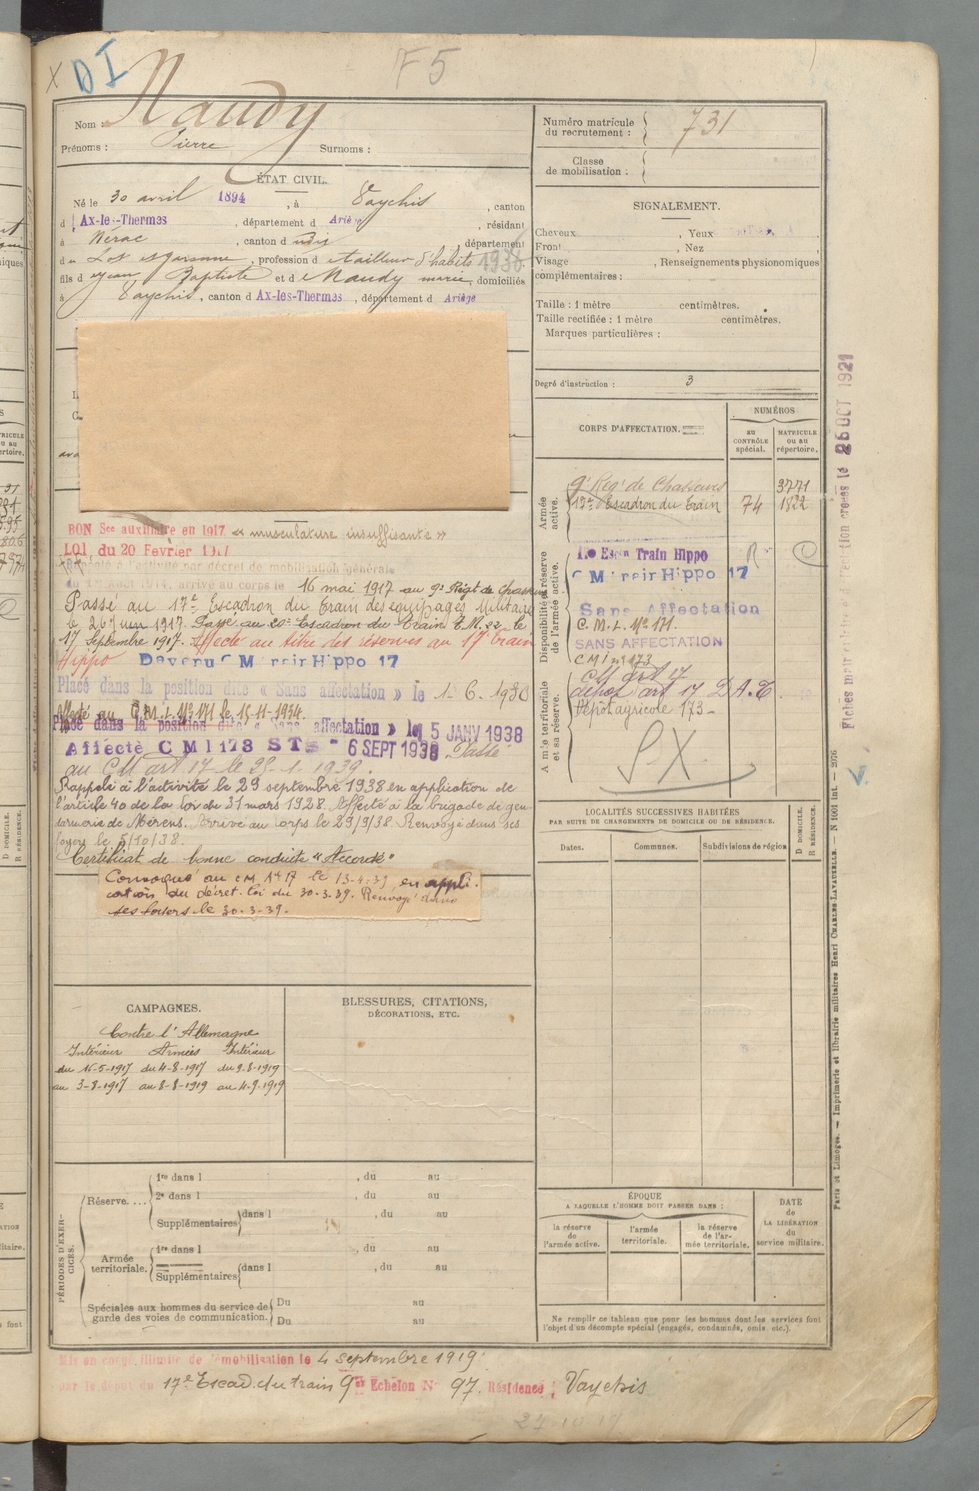 X DI F5
Nom : Naudy
Prénoms : Pierre Surnoms :
ÉTAT CIVIL.
Né le 30 avril 1894, à Vaychis, canton
d Ax-les-Thermes, département d Ariège, résidant
à Nérac, canton d udis, département
du Lot et Garonne, profession de tailleur d'habits 1938
fils de Jean Baptiste et de Naudy marie, domiciliés
à Vaychis, canton d Ax-les-Thermes, département d Ariège
BON Sce auxiliaire en 1917 « musculature insuffisante »
LOI du 20 Février 1917
Rappelé à l'activité par décret de mobilisation générale
du 1er Août 1914, arrivé au corps le 16 mai 1917 au 9e Régt de chasseurs
Passé au 17e Escadron du Train des équipages Militaires
le 26 Juin 1917. Passé au 20e Escadron du Train E.M. 22 le
17 Septembre 1917. Affecté au titre des réserves au 17e Train
Hippo Devenu C M Hippo 17
Placé dans la position dite « Sans affectation » le 1. 6. 1930
Affecté au C.M.I. N° 171 le 15-11-1934.
Placé dans la position dite « Sans affectation » le 5 JANV 1938
Affecté C M I 173 6 SEPT 1938 Passé
au CM art 17 le 1. 1939.
Rappelé à l'activité le 29 septembre 1938 en application de
l'article 40 de la loi du 31 mars 1928. Affecté à la brigade de gen-
darmerie de Mérens. Arrivé au corps le 29/9/38. Renvoyé dans ses
foyers le 5/10/38.
Certificat de bonne conduite "Accordé"
Convoqué au CM Art 17 le 13-4-39, en appli-
cation du décret-loi du 30-3-39. Renvoyé dans
ses foyers le 30-3-39.
CAMPAGNES.
Contre l'Allemagne
Intérieur Armées Intérieur
du 15-5-1917 du 4-8-1917 du 9-8-1919
au 3-8-1917 au 8-8-1919 au 4-9-1919
BLESSURES, CITATIONS,
DÉCORATIONS, ETC.
PÉRIODES D'EXER-
CICES.
Réserve.... 1re dans l , du au
2e dans l , du au
Supplémentaires dans l , du au
Armée
territoriale. 1re dans l , du au
Supplémentaires dans l , du au
Spéciales aux hommes du service de
garde des voies de communication. Du au
Du au
Mis en congé illimité de démobilisation le 4 septembre 1919
par le dépôt du 17e Escad. du train 9e Echelon N° 97. Résidence : Vaychis
Numéro matricule
du recrutement : 731
Classe
de mobilisation :
SIGNALEMENT.
Cheveux , Yeux
Front , Nez
Visage , Renseignements physionomiques
complémentaires :
Taille : 1 mètre centimètres.
Taille rectifiée : 1 mètre centimètres.
Marques particulières :
Degré d'instruction : 3
CORPS D'AFFECTATION.
NUMÉROS
au
CONTRÔLE
spécial.
MATRICULE
ou au
répertoire.
Armée
active.
9e Régt de Chasseurs 3771
17e Escadron du Train 74 1822
Disponibilité et réserve
de l'armée active.
17e Escon Train Hippo R
C M Hippo 17
Sans Affectation
C.M.I. N° 171.
SANS AFFECTATION
CMI n°173
Armée territoriale
et sa réserve.
CM art 17
dépot art 17 D.A.T.
Dépôt agricole 173
SX
LOCALITÉS SUCCESSIVES HABITÉES
PAR SUITE DE CHANGEMENTS DE DOMICILE OU DE RÉSIDENCE.
Dates. Communes. Subdivisions de région
D DOMICILE.
R RÉSIDENCE.
ÉPOQUE
A LAQUELLE L'HOMME DOIT PASSER DANS :
la réserve
de
l'armée active.
l'armée
territoriale.
la réserve
de l'ar-
mée territoriale.
DATE
de
LA LIBÉRATION
du
service militaire.
Ne remplir ce tableau que pour les hommes dont les services font
l'objet d'un décompte spécial (engagés, condamnés, omis, etc.).
Paris et Limoges. — Imprimerie et librairie militaires Henri CHARLES-LAVAUZELLE. — N 1001 int. — 2076
26 OCT 1921